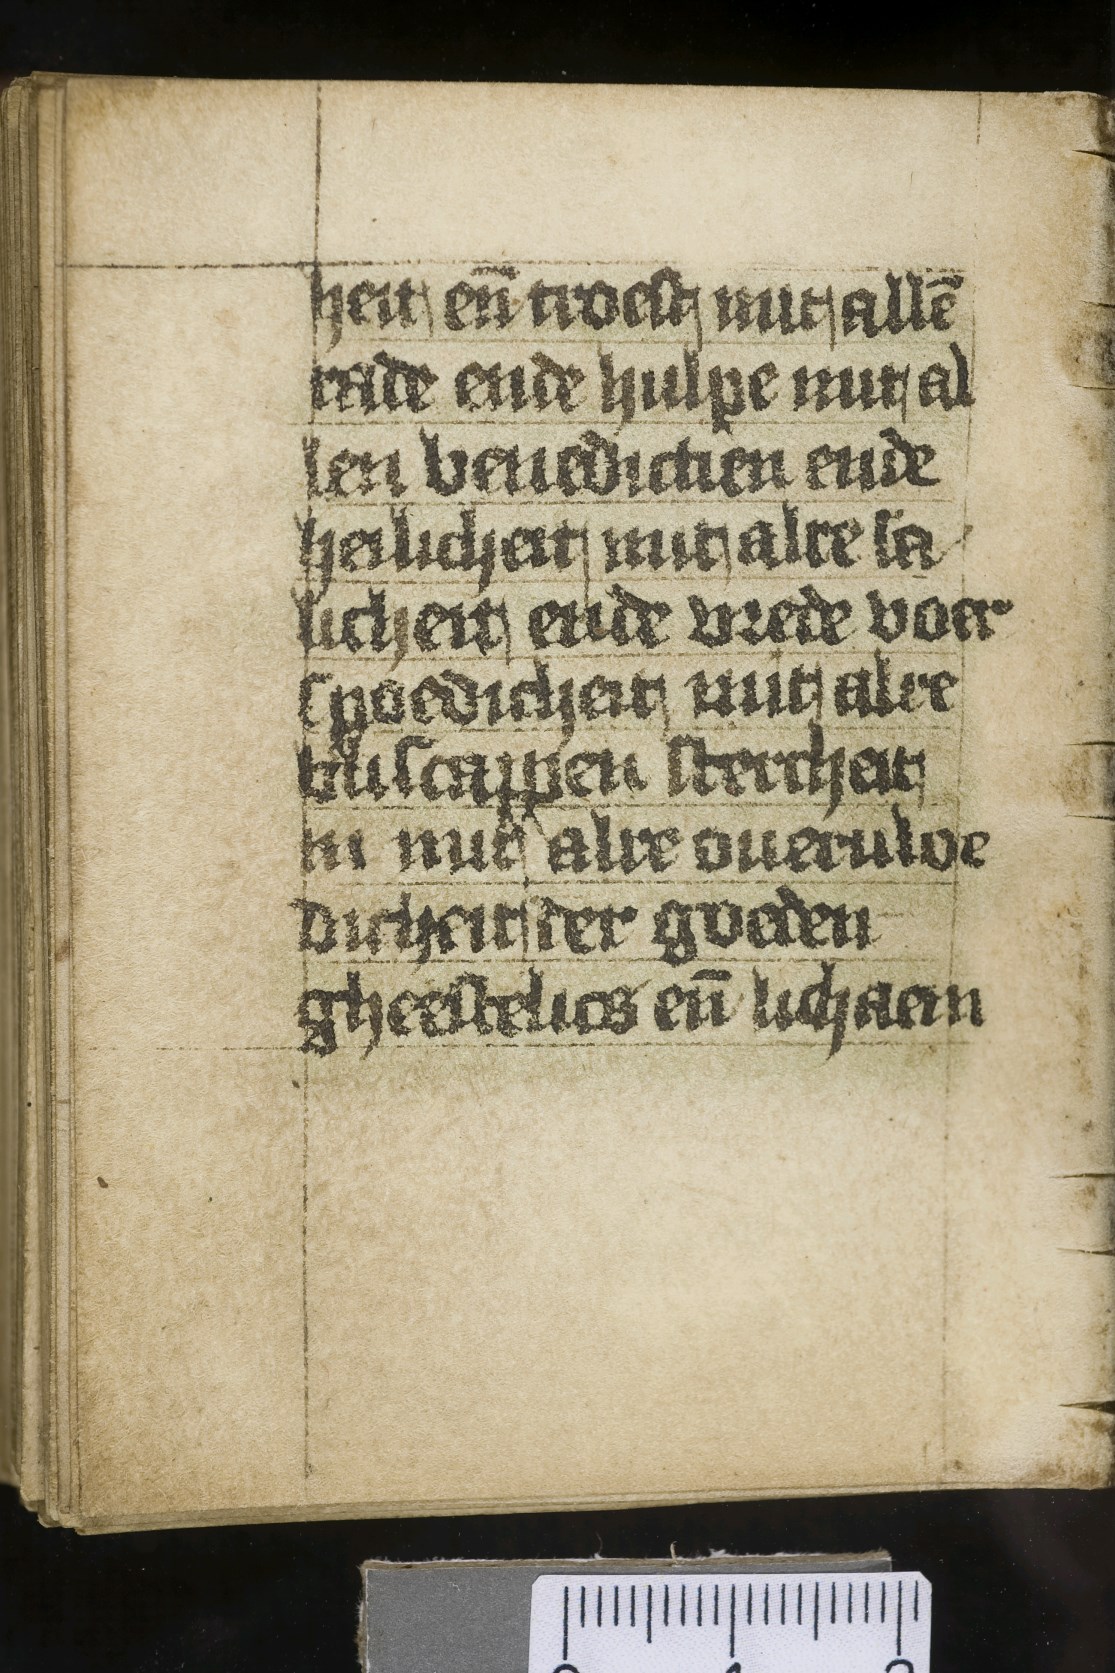 heit en̄ troest mit allē
rade ende hulpe mit al
len benedictien ende
heilicheit mit alre sa
licheit ende vrede voer
spoedicheit mit alre
bliscappen stercheit
in mit alre oueruloe
dicheit der goeden
gheestelics en̄ lichaem